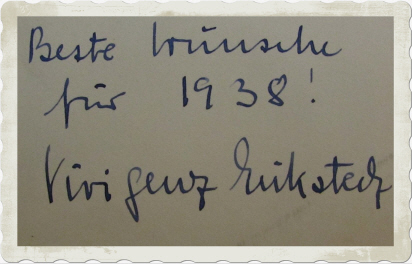 Beste Wünsche
für 1938!
Vivigenz Eickstedt